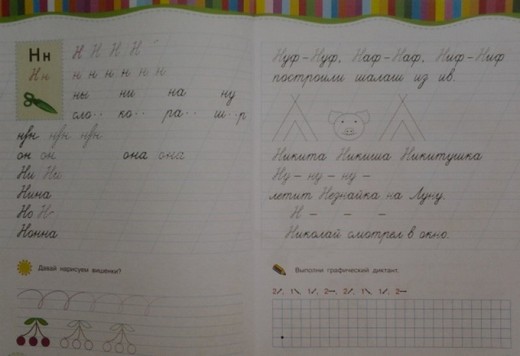 Нн Н Н Н Н
Нн н н н н н н
ны ни на ну
сло.. ко.. ра.. ш..р
он он она она
Ни Ни
Нина
Но Но
Нонна
Давай нарисуем вишенки?
Нуф – Нуф, Наф – Наф, Ниф – Ниф
построили шалаш из ив.
Никита Никиша Никитушка
Ну – ну – ну –
летит Незнайка на Луну.
Н – – –
Николай смотрел в окно.
Выполни графический диктант.